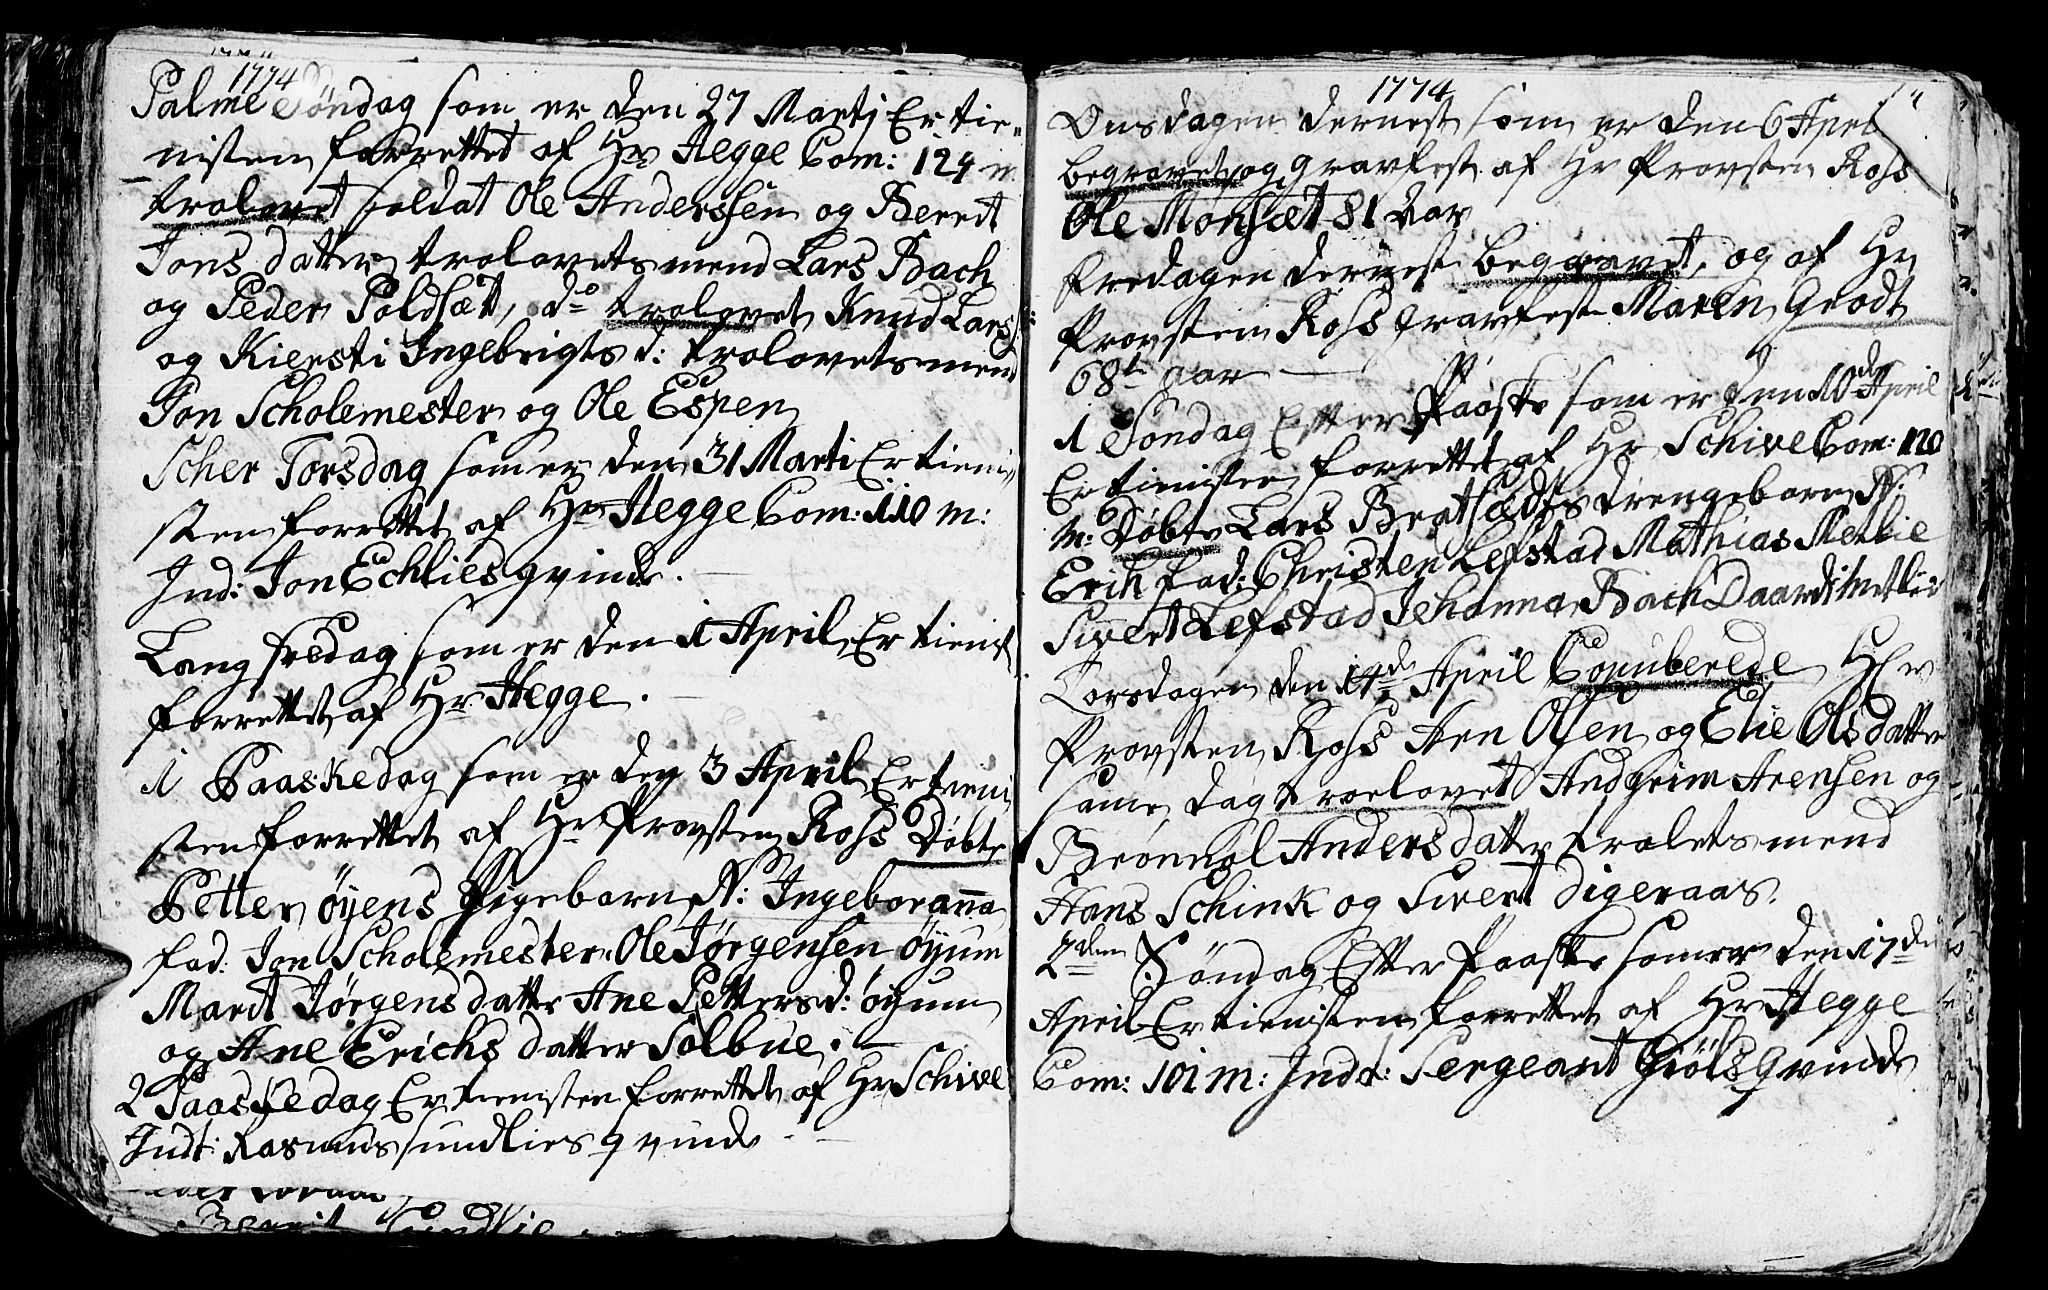 1774
Palme Søndag som er den 27 Martj Er tie-
nisten forrettet af Hr Hegge Com: 124 m
trolovet soldat Ole Anderssen og Berret
Jons datter trolovetsmend Lars Bach
og Peder Poldsæt, do trolovet Knud Lars:
og Kiersti Ingebrigts d: trolovetsmend
Jon Scholemester og Ole Espen
Scher Torsdag som er den 31 Marti Er tieni-
sten forrettet af Hr Hegge Com: 110 m:
Ind: Jon Echlies qvinde.
Lang fredag som er den 1 April Er tienist
forrettet af Hr Hegge.
1 Paaskedag som er den 3 April Er tieni
sten forrettet af Hr Provsten Ross Døbte
Petter øyens Pigebarn N: Ingeboranna
fad: Jon Scholemester Ole Jørgensen øyum
Marit Jørgensdatter Ane Pettersd: øyum
og Ane Erichsdatter Solbue.
2 Paaskedag Er tienisten forrettet af Hr Schive
Indt: Rasmus sundlies qvinde
Berrit Sundlie
1774
Onsdagen dernest som er den 6 Apel
begravet og gravfest af Hr Provsten Ross
Ole Mønsæt 81 Aar
fredagen dernest begravet, og af Hr
Provsten Ross gravfest Maren Grødt
68t aar
1 Søndag Efter Paaske som er den 10de April
Er tienisten forrettet af Hr Schive Com: 120
m: Døbte Lars Bratsæds drengebarn N:
Erik fad: Christen Lefstad Mathias Metlie
Sivert Lefstad Jehanna Bach Daardi Metlie
Torsdagen den 14de April Copuberede Hr
Provsten Ross Aen Olsen og Elie Olsdatter
same dag troelovet Andgrim Arensen og
Brønnel Andersdatter trolets mend
Hans Schink og Sivert digeraas.
2den Søndag Efter Paaske som er den 17de
April Er tienisten forrettet af Hr Hegge
Com: 101 m: Indt: Sergeant Giøls Qvinde